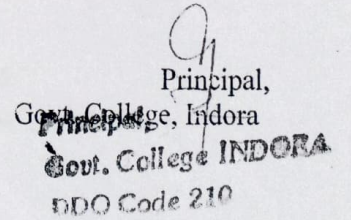 Principal,
Govt. College, Indora
Principal
Govt. College INDORA
DDO Code 210